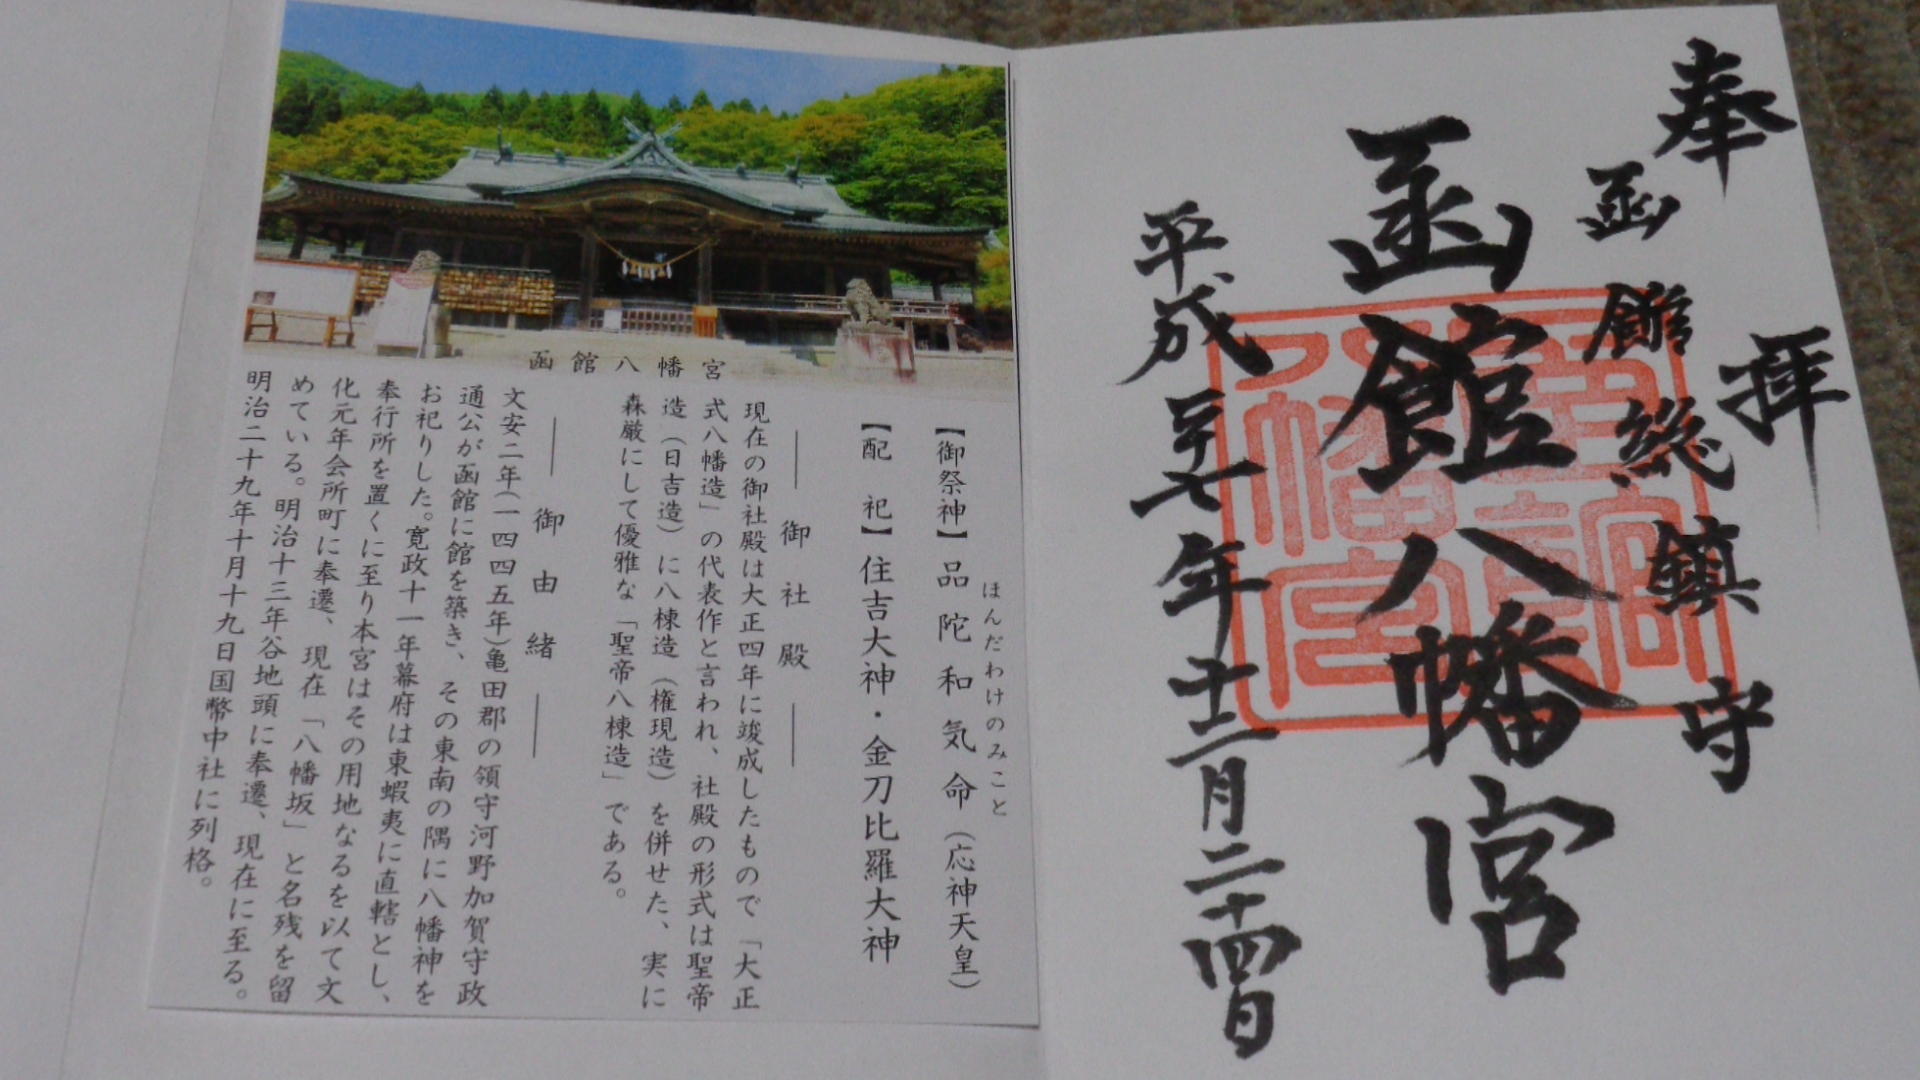 奉拝
函館総鎮守
函館八幡宮
平成二十七年十二月二十四日
函館八幡宮
函館八幡宮
【御祭神】品陀和気命（応神天皇）
ほんだわけのみこと
【配　祀】住吉大神・金刀比羅大神
―― 御社殿 ――
現在の御社殿は大正四年に竣成したもので「大正
式八幡造」の代表作と言われ、社殿の形式は聖帝
造（日吉造）に八棟造（権現造）を併せた、実に
森厳にして優雅な「聖帝八棟造」である。
―― 御由緒 ――
文安二年（一四四五年）亀田郡の領守河野加賀守政
通公が函館に館を築き、その東南の隅に八幡神を
お祀りした。寛政十一年幕府は東蝦夷に直轄とし、
奉行所を置くに至り本宮はその用地なるを以て文
化元年会所町に奉遷、現在「八幡坂」と名残を留
めている。明治十三年谷地頭に奉遷、現在に至る。
明治二十九年十月十九日国幣中社に列格。